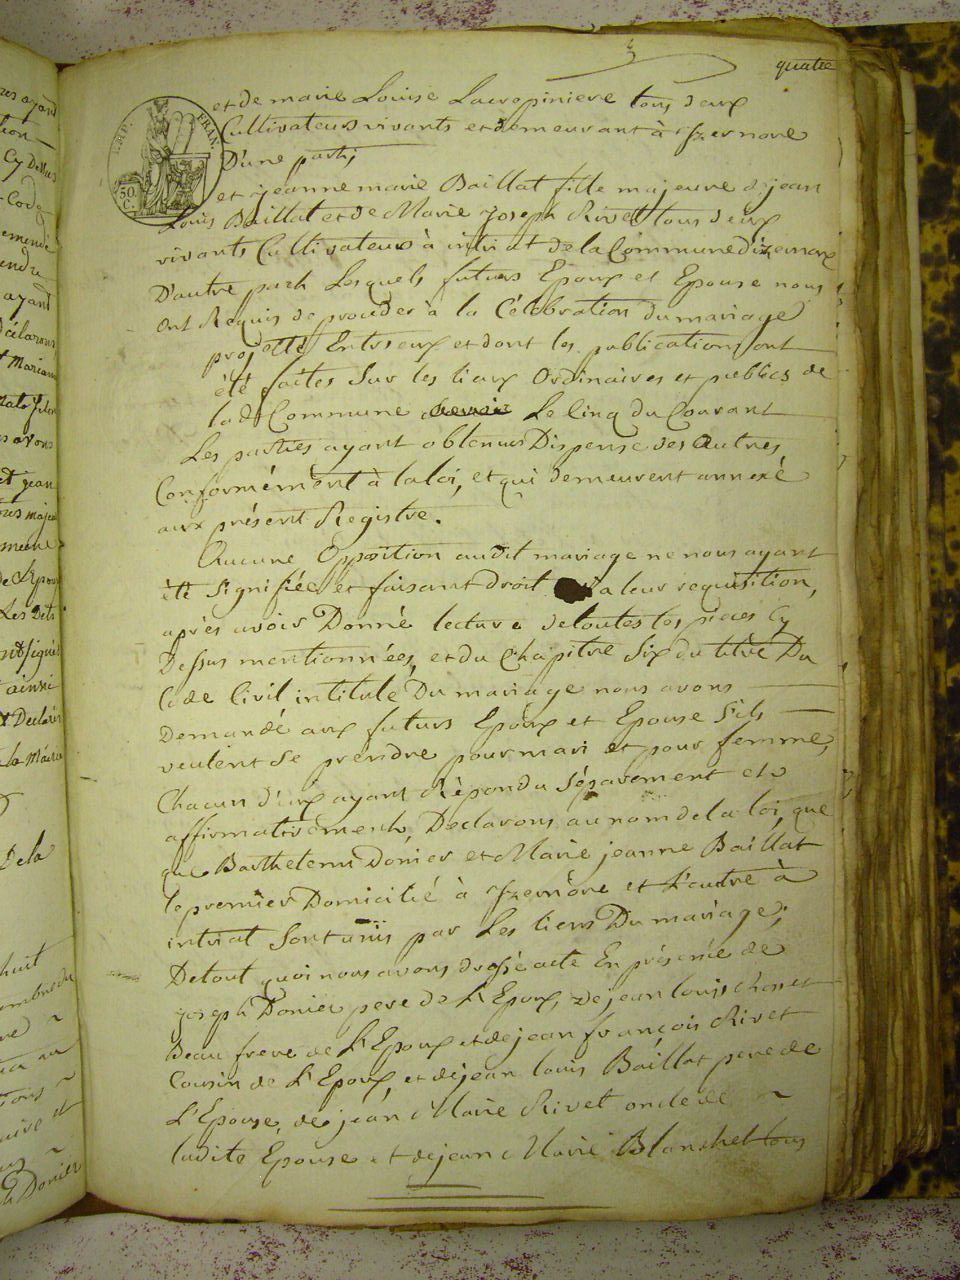 quatre
IMP. FRAN.
50 C.
et de marie Louise Lacropiniere tous deux
Cultivateurs vivants et demeurant à Izernore
D'une part;
et jeanne marie Baillat fille majeure de jean
Louis Baillat et de Marie joseph Rivet tous deux
vivants Cultivateurs à intriat de la Commune d'izernore
D'autre part Lesquels futurs Epoux et Epouse nous
ont Requis de proceder à la Célébration du mariage
projetté Entr'eux et dont les publications ont
été faites Sur les lieux Ordinaires et publics de
lad Commune Le Cinq du Courant
Les parties ayant obtenues Dispense des Autres,
Conformément à la loi, et qui demeurent annexé
aux présent Registre.
Aucune Opposition audit mariage ne nous ayant
été Signifiée et faisant droit a leur requisition,
après avoir Donné lecture de toutes les pieces Cy
Dessus mentionnées, et du Chapitre Six du titre Du
Code Civil intitulé Du mariage nous avons
Demandé aux futurs Epoux et Epouse S'ils
veulent se prendre pour mari et pour femme,
Chacun d'eux ayant Répondu Séparement et
affirmativement, Declarons au nom de la loi, que
que Barthelemi Donier et Marie jeanne Baillat
le premier Domicilié à Izernore et L'autre à
intriat Sont unis par Les liens Du mariage;
De tout quoi nous avons dressé acte En présence de
joseph Donier pere de L'Epoux, de jean louis
beau frere de L'Epoux et de jean françois Rivet
Cousin de L'Epoux, et de jean louis Baillat pere de
L'Epouse, de jean Marie Rivet oncle de
ladite Epouse et de jean Marie Blanchet tous